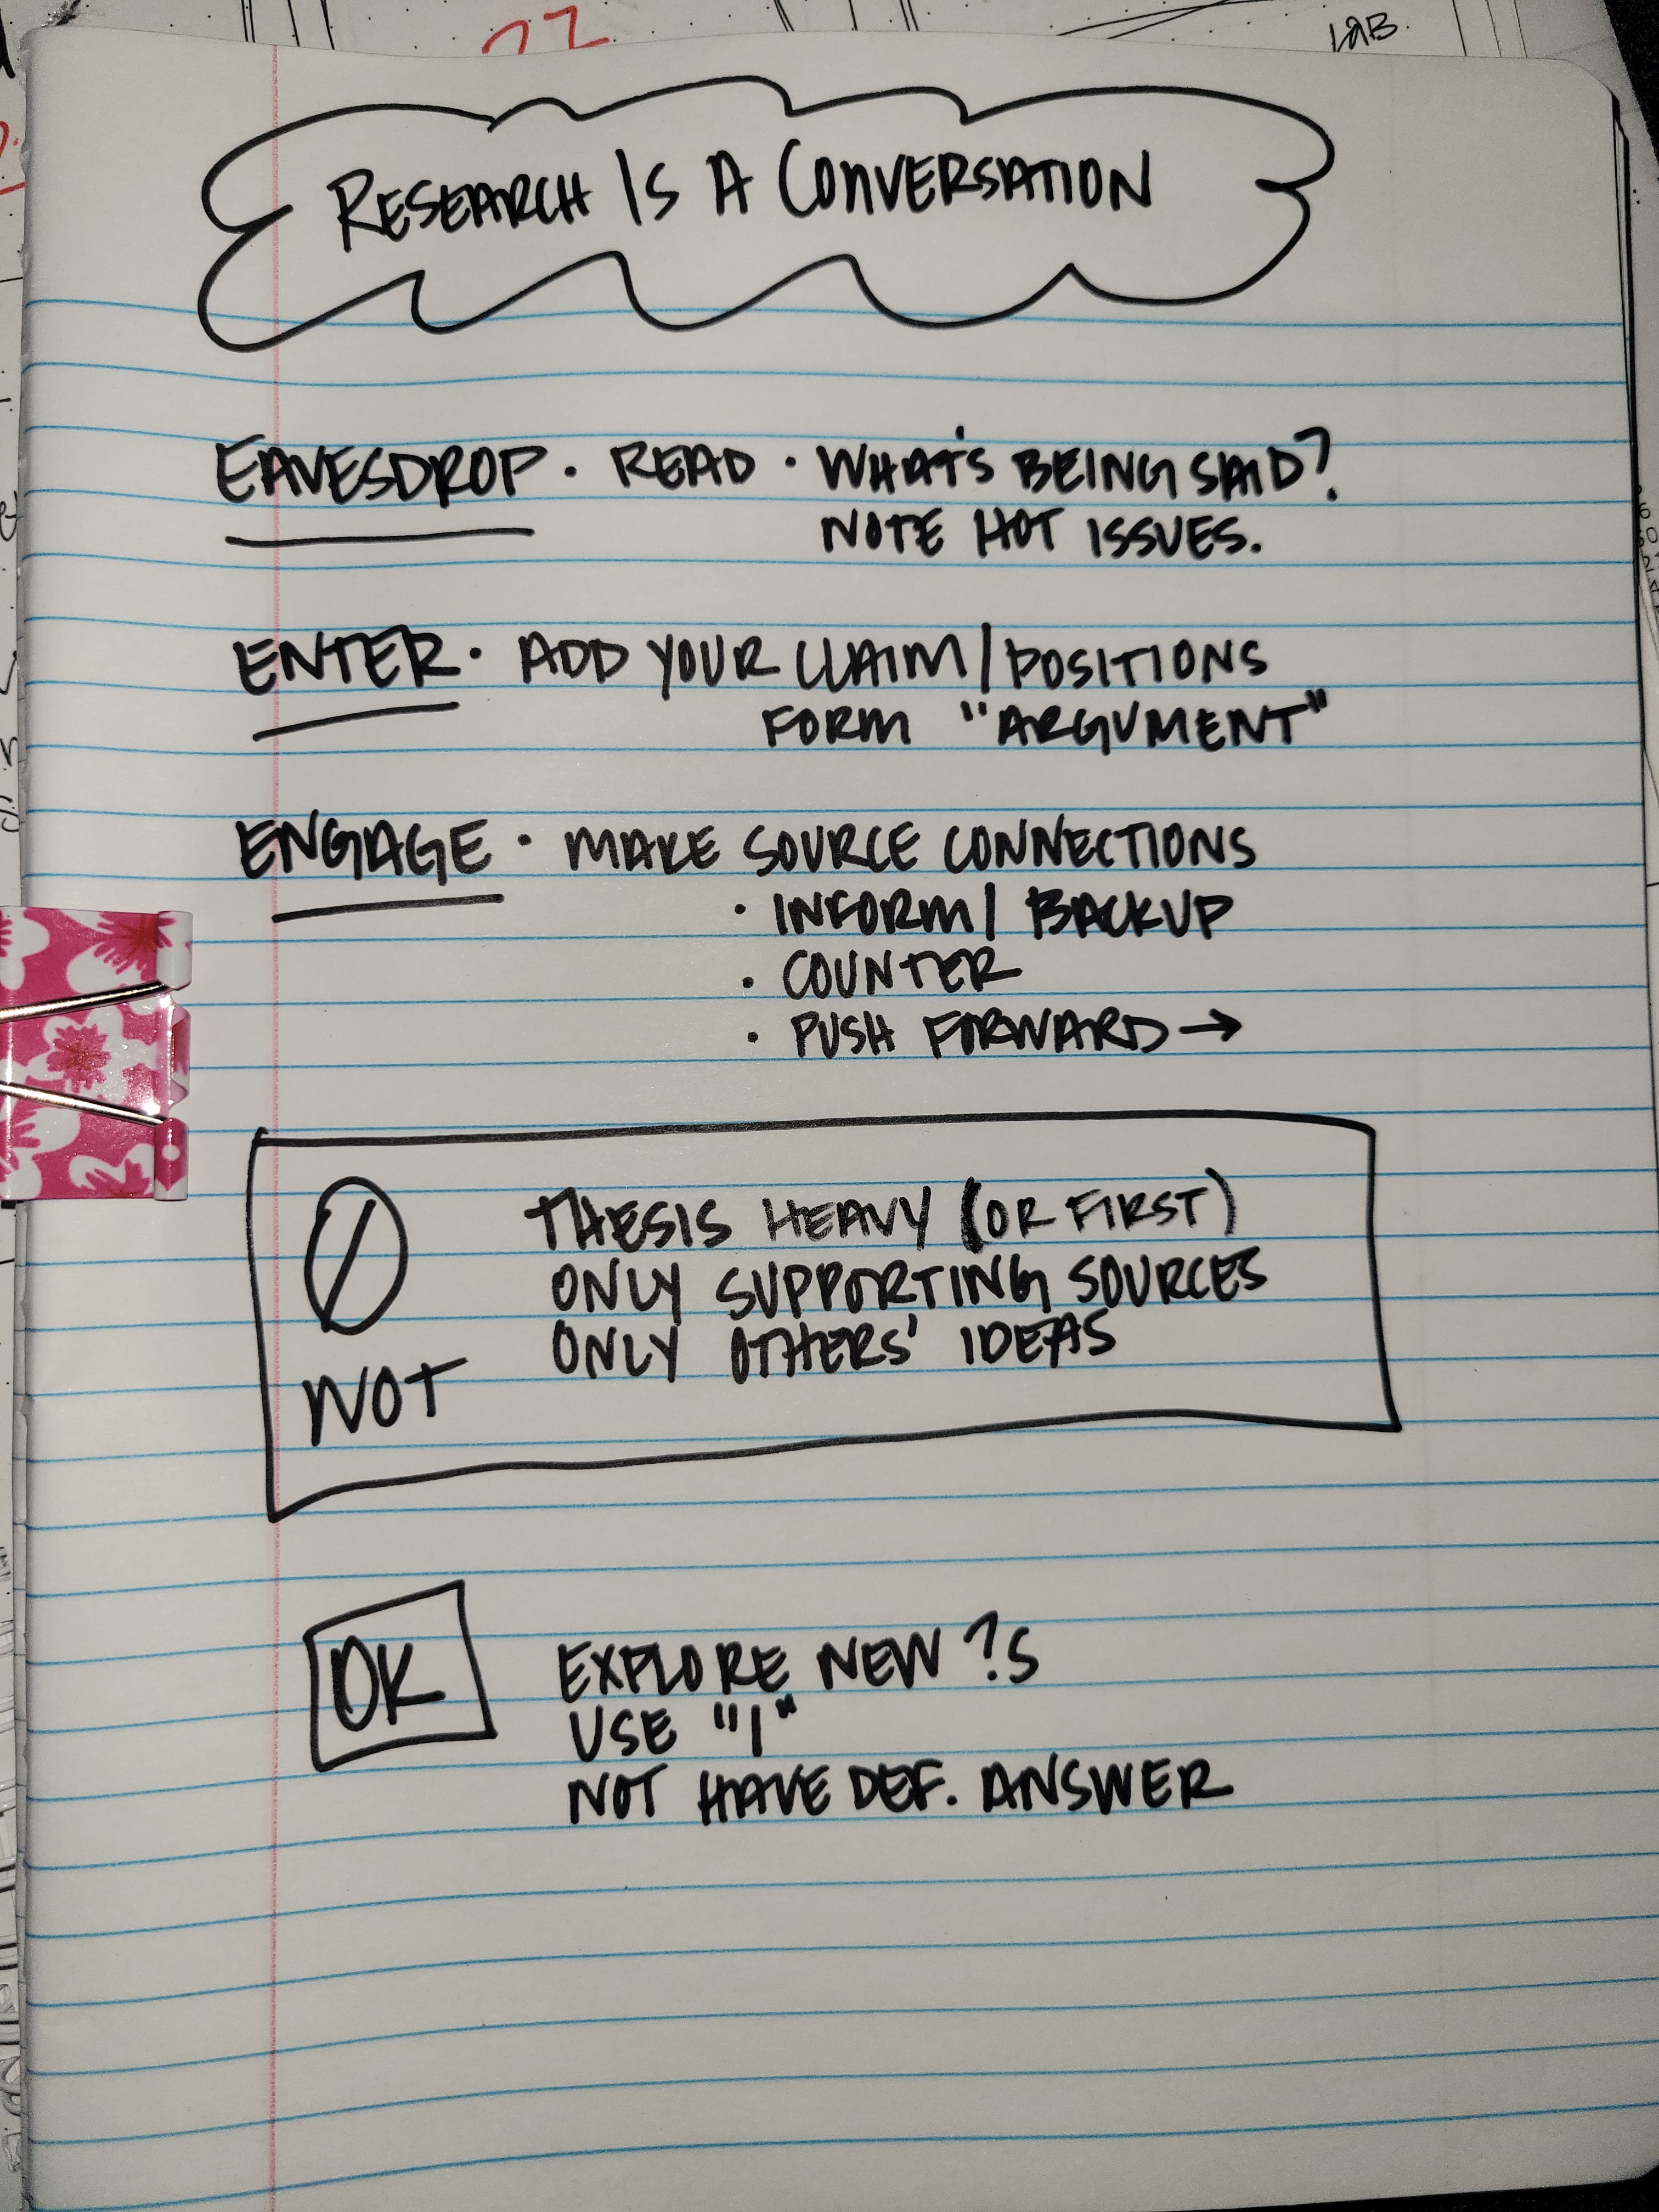 LAB.
RESEARCH IS A CONVERSATION
EAVESDROP · READ · WHAT'S BEING SAID?
NOTE HOT ISSUES.
ENTER · ADD YOUR CLAIM/POSITIONS
FORM "ARGUMENT"
ENGAGE · MAKE SOURCE CONNECTIONS
· INFORM/BACKUP
· COUNTER
· PUSH FORWARD →
NOT
THESIS HEAVY (OR FIRST)
ONLY SUPPORTING SOURCES
ONLY OTHERS' IDEAS
OK
EXPLORE NEW ?S
USE "I"
NOT HAVE DEF. ANSWER